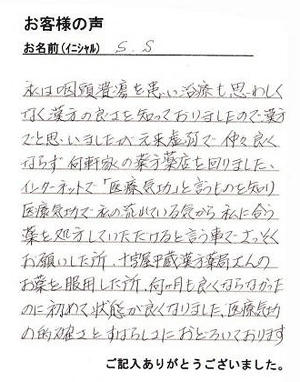 お客様の声
お名前（イニシャル） S.S
私は咽頭潰瘍を患い治療も思わしく
なく漢方の良さを知っておりましたので漢方
でと思いましたが元来虚弱で仲々良く
ならず何軒家の漢方薬店を回りました、
インターネットで「医療気功」と言うものを知り
医療気功で私の流れている気から私に合う
薬を処方していただけると言う事でさっそく
お願いした所、十字屋平蔵漢方薬局さんの
お薬を服用した所、何ヶ月も良くならなかった
のに初めて状態が良くなりました、医療気功
の的確さとすばらしさにおどろいております
ご記入ありがとうございました。